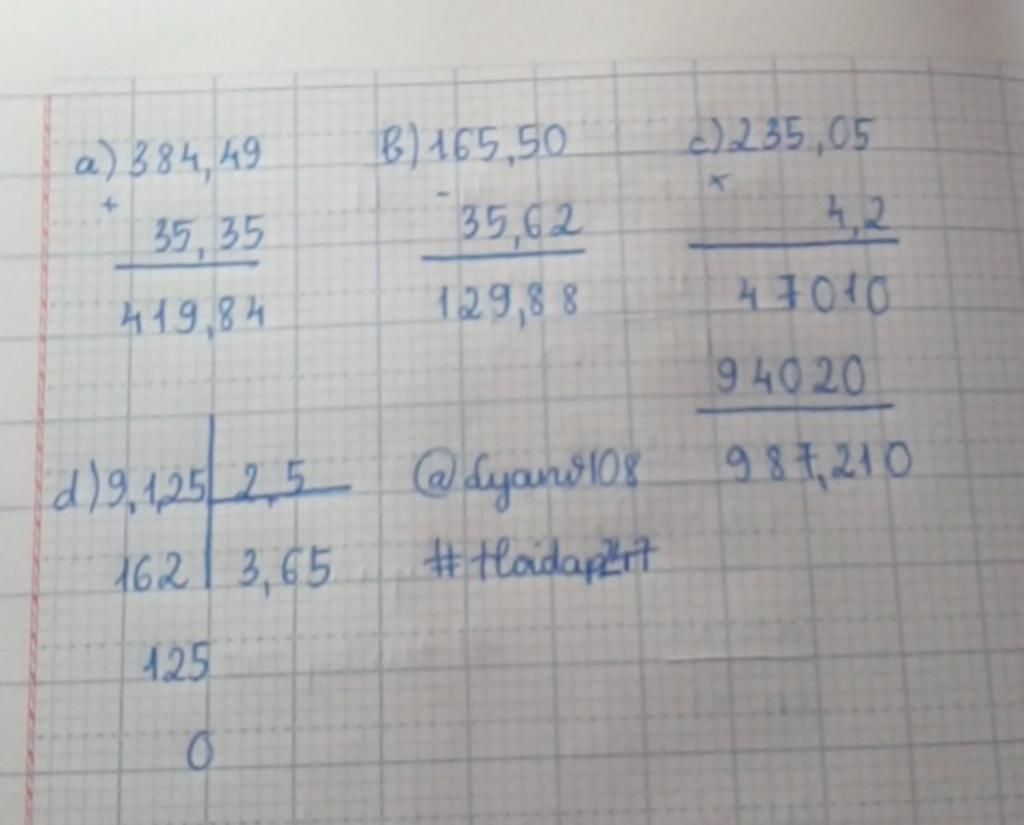 a) 384,49
+
35,35
419,84
b) 165,50
-
35,62
129,88
c) 235,05
x
4,2
47010
94020
987,210
d) 9,125 2,5
162 3,65
125
0